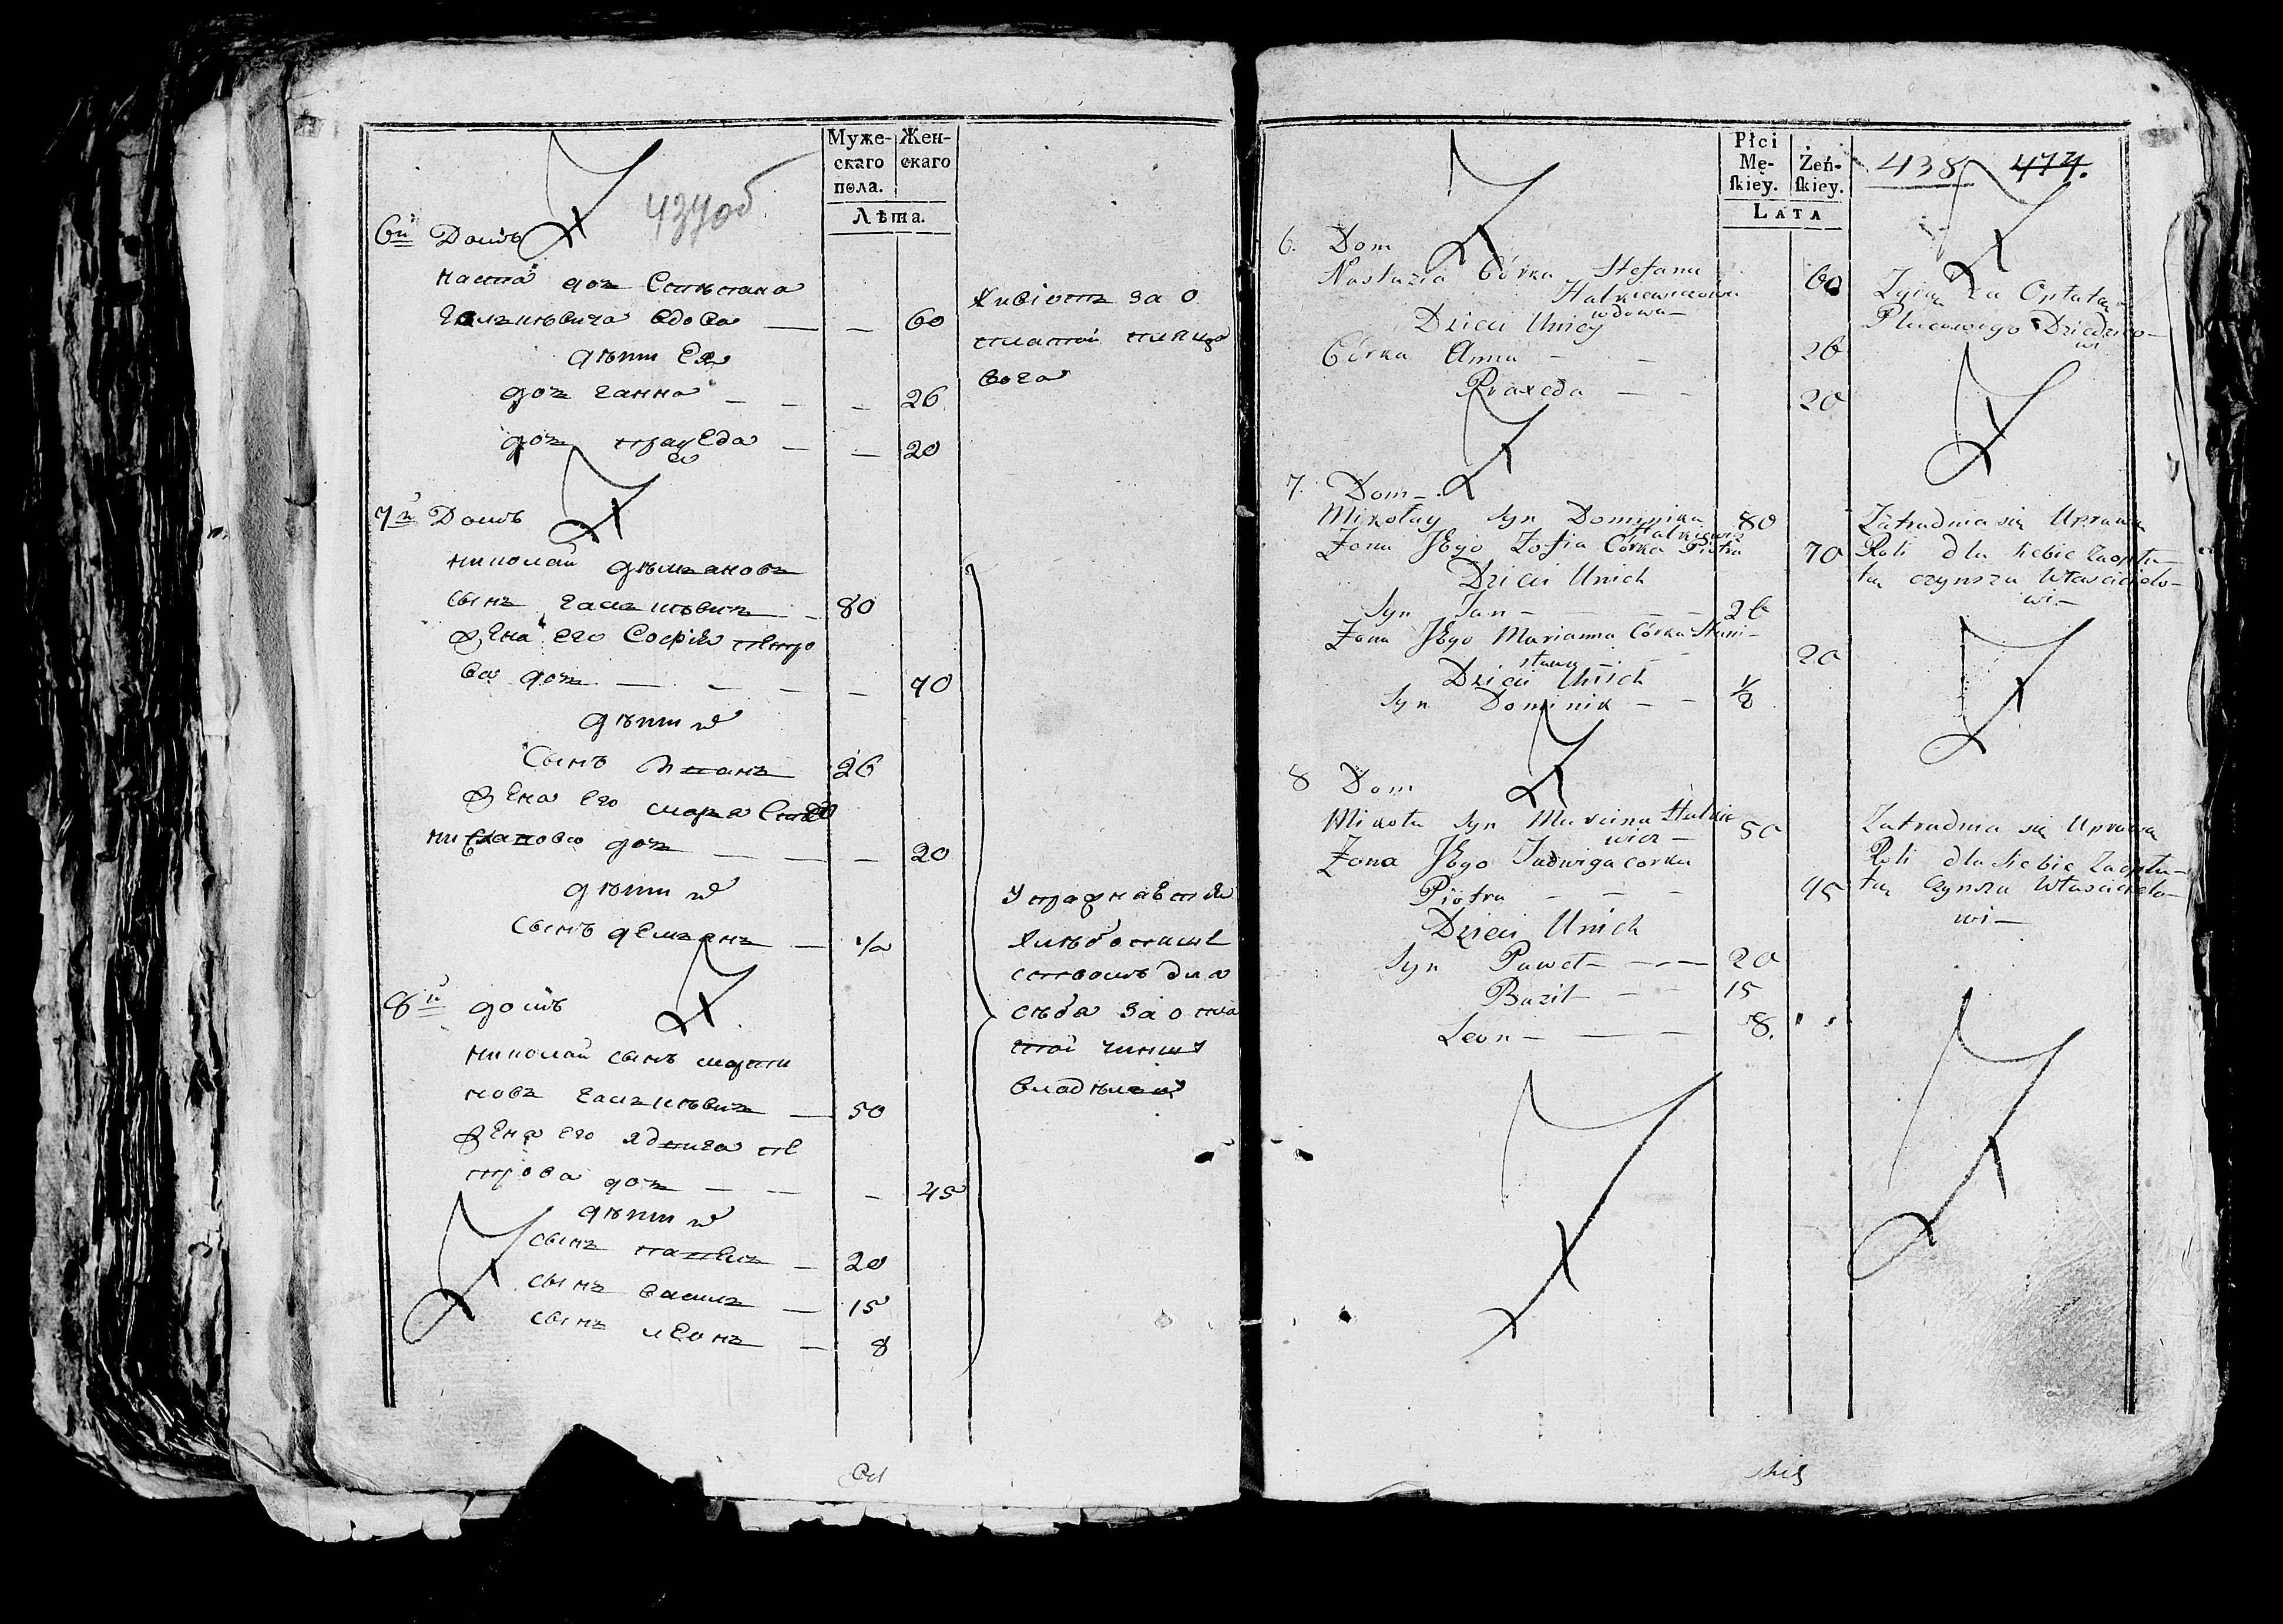 Муже-
скаго
пола.
Жен-
скаго
Лѣта.
437об
6й Домъ
наста доч Стѣпана
Галкѣвича вдова — — 60
дѣти Ея
доч ганна — — — 26
доч праqЕда — — 20
Живіот за о
платой пляцо
вого
7й Домъ
николай дѣмэнов
сын галкѣвич — 80
жЕна Его Софія пЕтро
ва доч — — — — 70
дѣти и
Сынъ Иван 26
жЕна Его мара Ста
ниславова доч — — — 20
дѣти и
сынъ дЕмэн — 1/2
8й домъ
николай сынъ марти
нов галкѣвич — 50
жЕна Его ядвига пЕ
трова доч — — — 45
дѣти и
сын павЕл — 20
сын васил — 15
сын лЕон — 8
Упражнаетія
хлѣбопаше
ством для
сѣбя за опла
той чиншу
владѣлцу
Płci
Mę-
skiey.
Żeń-
skiey.
LATA
438 474.
6. Dom
Nastazia Córka Stefana
Halkiewiczowa 60
wdowa —
Dzieci Unicy
Córka Anna — — 26
Praxeda — — 20
Żyią za Opłatą
Placowego Dziedzico-
wi
7. Dom —
Mikołay Syn Dominika 80
Halkiewicz
Żona JEgo Zofia Córka Piotra 70
Dzieci Unich
Syn Jan — — — — 26
Żona JEgo Marianna Córka Stani-
sława — — 20
Dzieci Unich
Syn Dominik — — 1/2
Zatrudnia się Uprawą
Roli dla siebie za opła-
tą czynszu Właścicielo-
wi —
8 Dom
Mikoła Syn Marcina Halkie
wicz — 50
Żona JEgo Jadwiga corka
Piotra — — — 45
Dzieci Unich
Syn Paweł — — — 20
Bazil — — 15
Leon — — — 8.
Zatrudnia się Uprawą
Roli dla siebie za opła-
tą Czynszu Właścicielo-
wi —